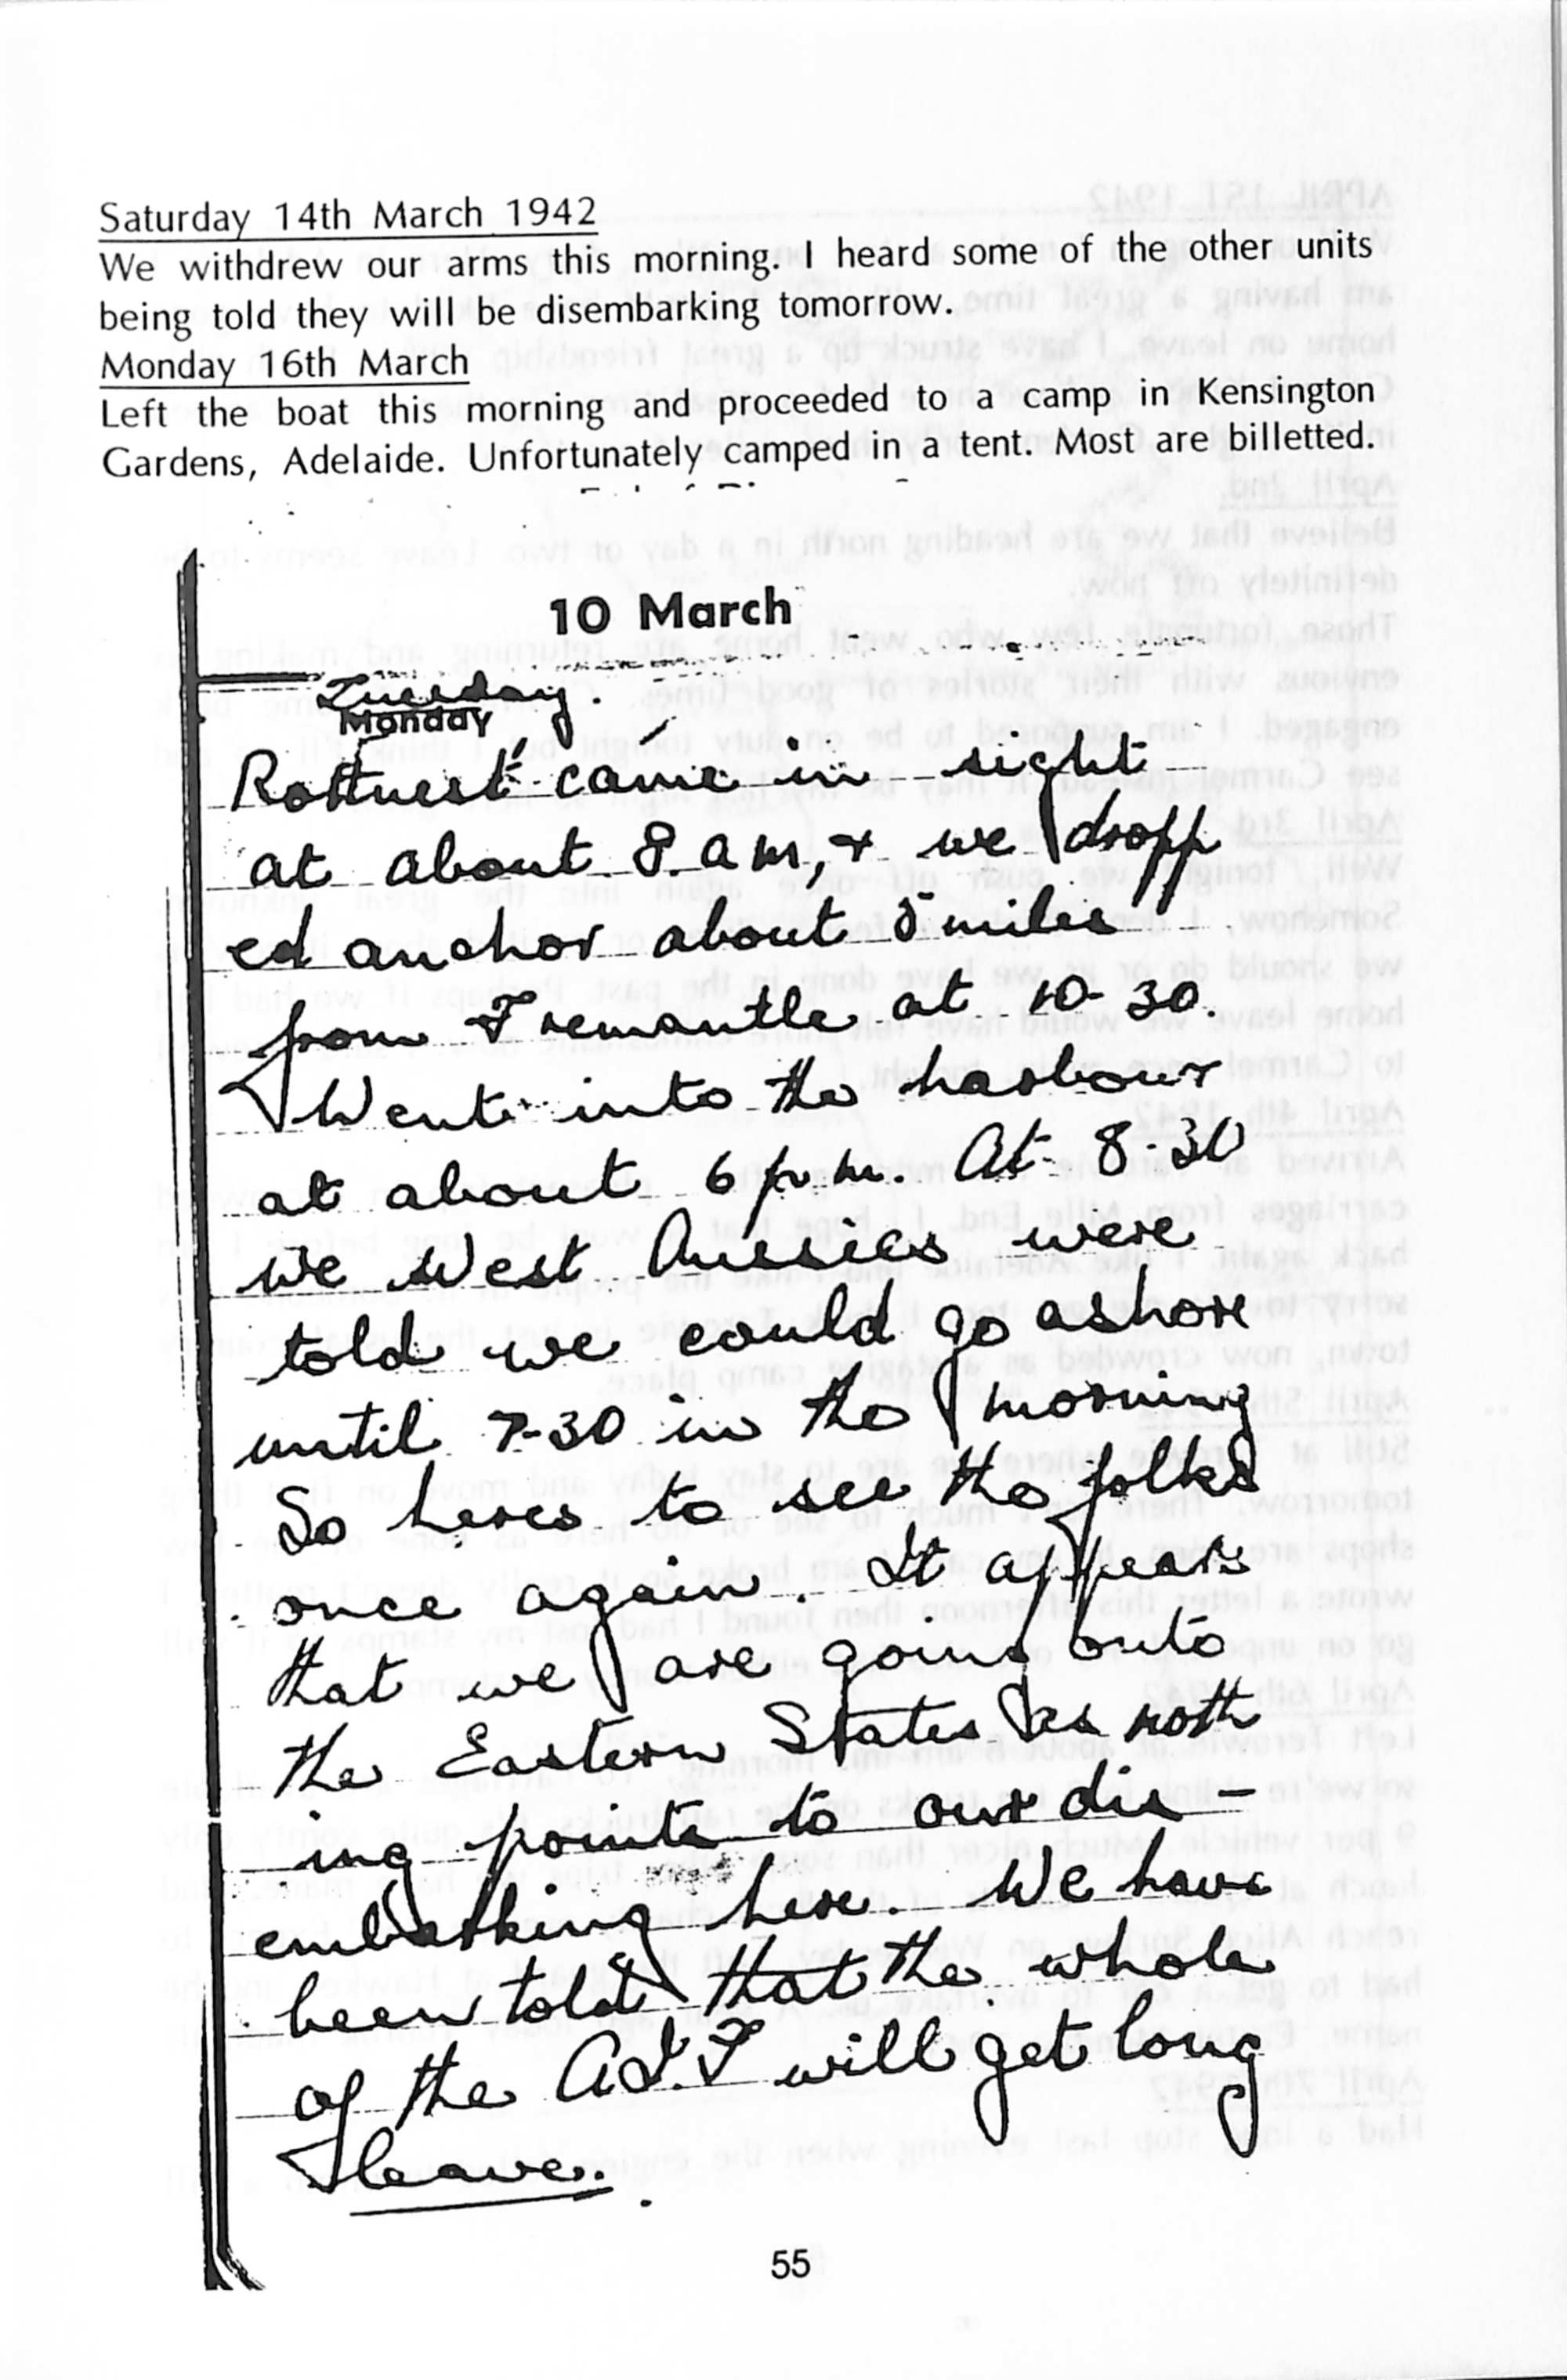 Saturday 14th March 1942
We withdrew our arms this morning. I heard some of the other units
being told they will be disembarking tomorrow.
Monday 16th March
Left the boat this morning and proceeded to a camp in Kensington
Gardens, Adelaide. Unfortunately camped in a tent. Most are billetted.
10 March
Tuesday.
Monday
Rottnest came in sight
at about 8 am, + we dropp
ed anchor about 5 miles
from Fremantle at 10-30.
Went into the harbour
at about 6 p.m. At 8-30
we West Aussies were
told we could go ashore
until 7-30 in the morning
So heres to see the folks
once again. It appears
that we are going onto
the Eastern States as noth
ing points to our dis-
embarking here. We have
been told that the whole
of the A.I.F will get long
leave.
55